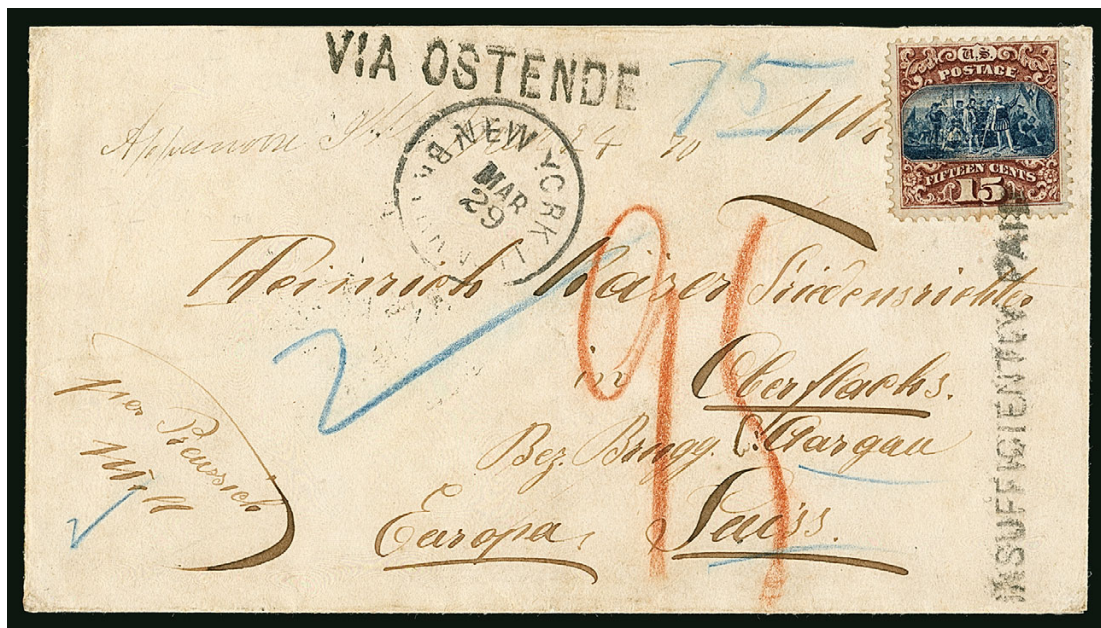 VIA OSTENDE
75
U.S.
POSTAGE
FIFTEEN CENTS
15
Appanoose 24 70
NEW YORK
MAR
29
Heinrich Kaiser Friedensrichter
in Oberflachs.
Bez. Brugg. C. Aargau
Europa, Suiss.
per Preussich
Mail
95
INSUFFICIENTLY PAID